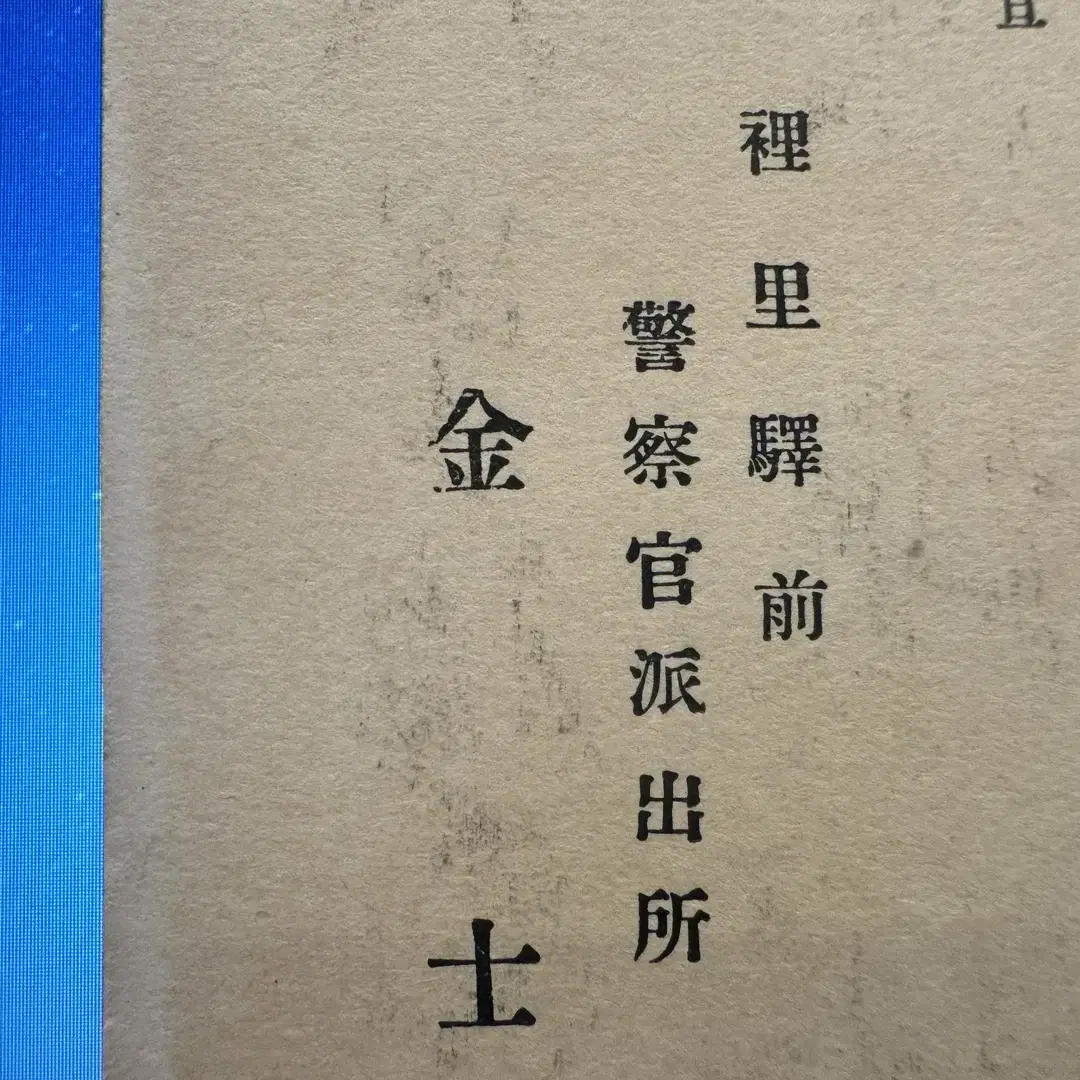 裡里驛前
警察官派出所
金士